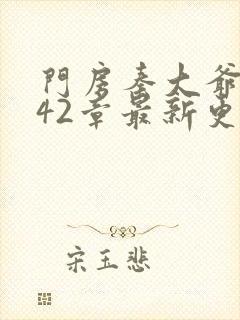 門房秦大爺
42章最新更
宋玉悲